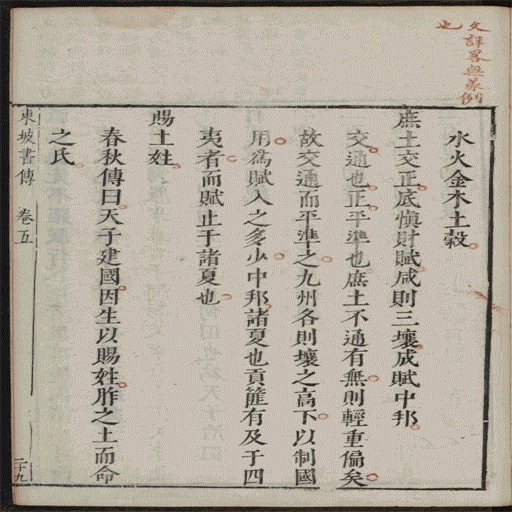 文詳畧無義例
也
水火金木土穀
庶土交正底愼財賦咸則三壤成賦中邦
交通也正平準也庶土不通有無則輕重偏矣
故交通而平準之九州各則壤之高下以制國
用爲賦入之多少中邦諸夏也貢篚有及于四
夷者而賦止于諸夏也
賜土姓
春秋傳曰天子建國因生以賜姓胙之土而命
之氏
東坡書傳 卷五
二十九